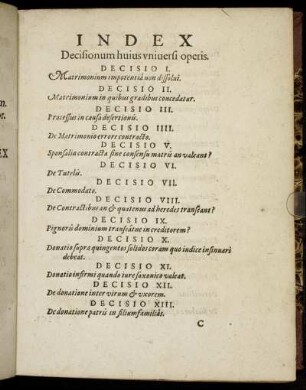 INDEX
Decisionum huius vniuersi operis.
DECISIO I.
Matrimonium impotentiâ non dissolui.
DECISIO II.
Matrimonium in quibus gradibus concedatur.
DECISIO III.
Processus in causa desertionis.
DECISIO IIII.
De Matrimonio errore contracto.
DECISIO V.
Sponsalia contracta sine consensu matris an valeant?
DECISIO VI.
De Tutelis.
DECISIO VII.
De Commodato.
DECISIO VIII.
De Contractibus an & quatenus ad heredes transeant?
DECISIO IX.
Pignoris dominium transeat'ne in creditorem?
DECISIO X.
Donatio supra quingentos solidos coram quo iudice insinuari
debeat.
DECISIO XI.
Donatio infirmi quando iure saxonico valeat.
DECISIO XII.
De donatione inter virum & vxorem.
DECISIO XIII.
De donatione patris in filium familiâs.
C